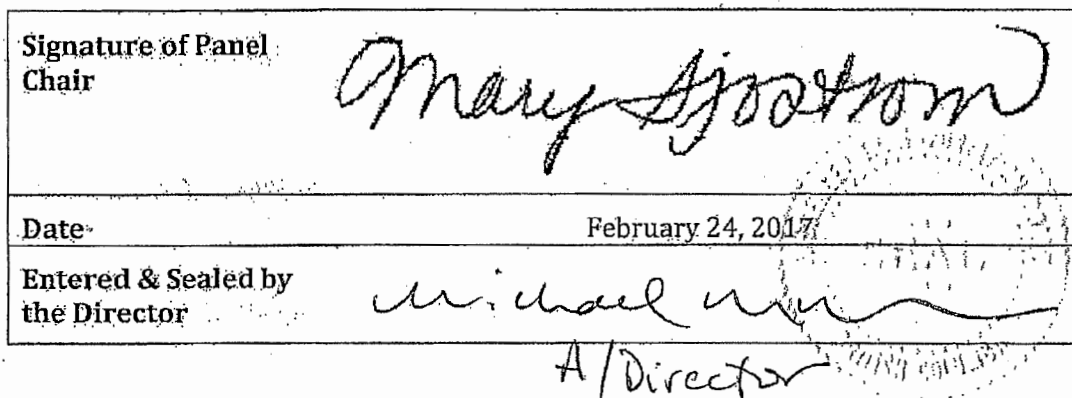 Signature of Panel
Chair
Mary Sjostrom
Date
February 24, 2017
Entered & Sealed by
the Director
Michael
A/Director